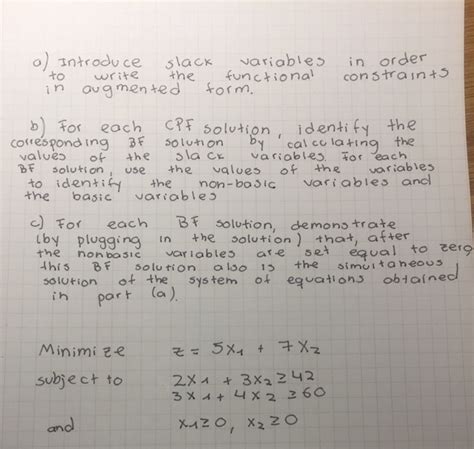 a) Introduce slack variables in order
to write the functional constraints
in augmented form.
b) For each CPF solution, identify the
corresponding BF solution by calculating the
values of the slack variables. For each
BF solution, use the values of the variables
to identify the non-basic variables and
the basic variables
c) For each BF solution, demonstrate
(by plugging in the solution) that, after
the nonbasic variables are set equal to zero,
this BF solution also is the simultaneous
solution of the system of equations obtained
in part (a).
Minimize z = 5x1 + 7x2
subject to 2x1 + 3x2 ≥ 42
3x1 + 4x2 ≥ 60
and x1 ≥ 0, x2 ≥ 0